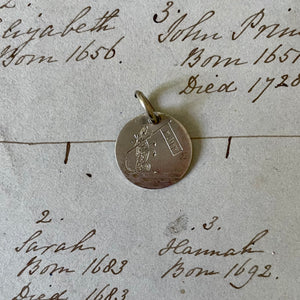 3.
Elizabeth
Born 1656.
John Prin
Born 165
Died 1720
2.
Sarah
Born 1683
Died
3.
Hannah
Born 1692.